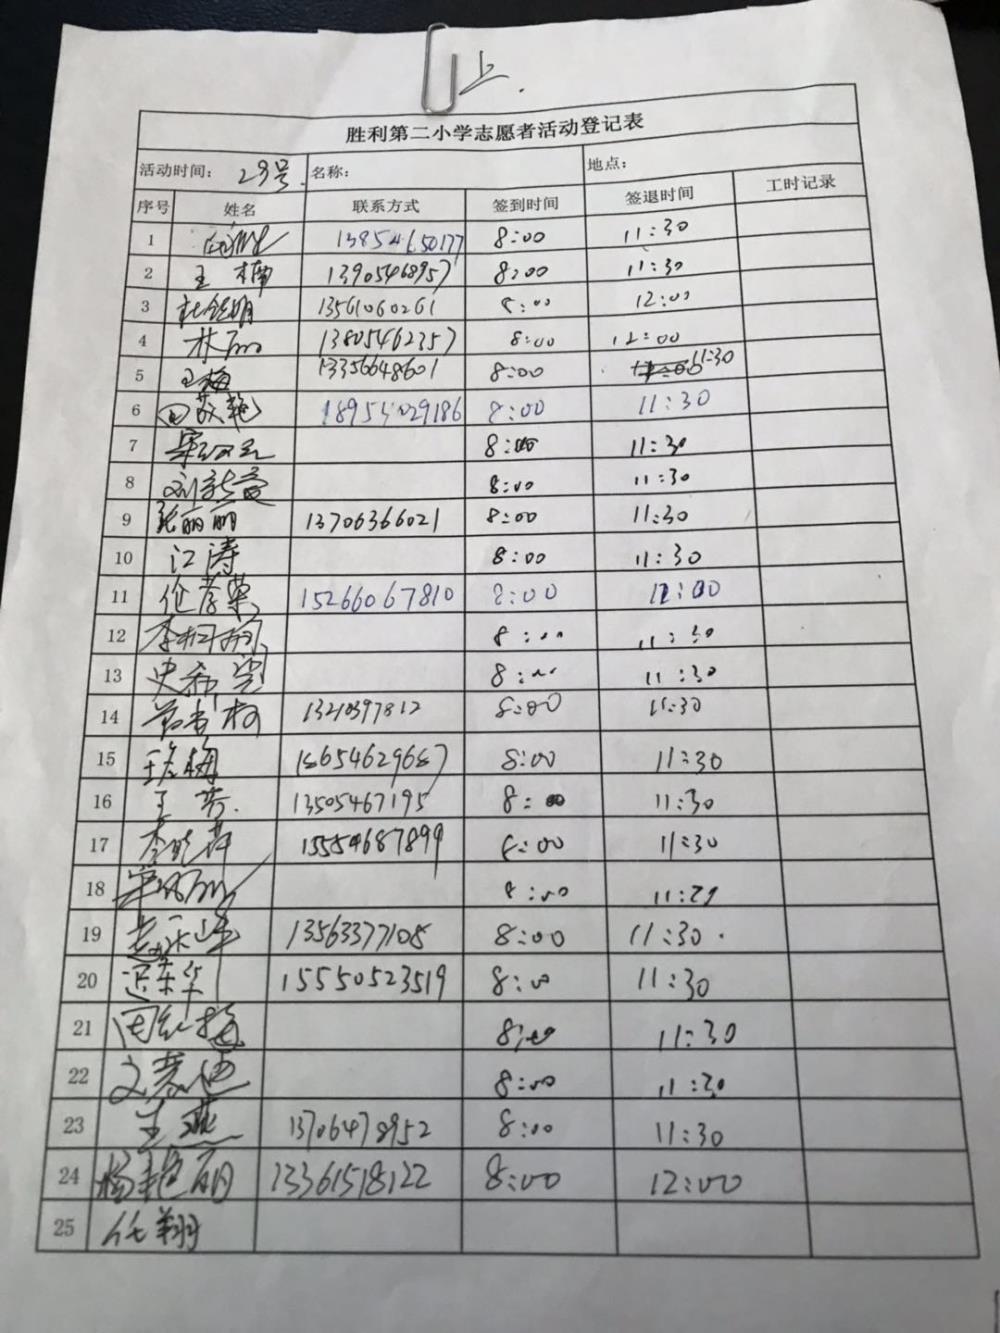 上.
胜利第二小学志愿者活动登记表
活动时间: 23号. 名称: 地点:
序号 姓名 联系方式 签到时间 签退时间 工时记录
1 13854650177 8:00 11:30
2 王楠 13905468957 8:00 11:30
3 13561060261 8:00 12:00
4 林丽 13805462357 8:00 12:00
5 王梅 13356648601 8:00 11:30
6 田荻艳 18954029186 8:00 11:30
7 8:00 11:30
8 8:00 11:30
9 张丽丽 13706366021 8:00 11:30
10 江涛 8:00 11:30
11 15266067810 8:00 12:00
12 8:00 11:30
13 8:00 11:30
14 13210397812 8:00 11:30
15 18654629687 8:00 11:30
16 王芳. 13505467195 8:00 11:30
17 李晓萍 15554687899 8:00 11:30
18 8:00 11:29
19 13563377108 8:00 11:30.
20 迟荣华 15550523519 8:00 11:30
21 8:00 11:30
22 8:00 11:30
23 王燕 13706478952 8:00 11:30
24 杨艳丽 13361518122 8:00 12:00
25 任翔